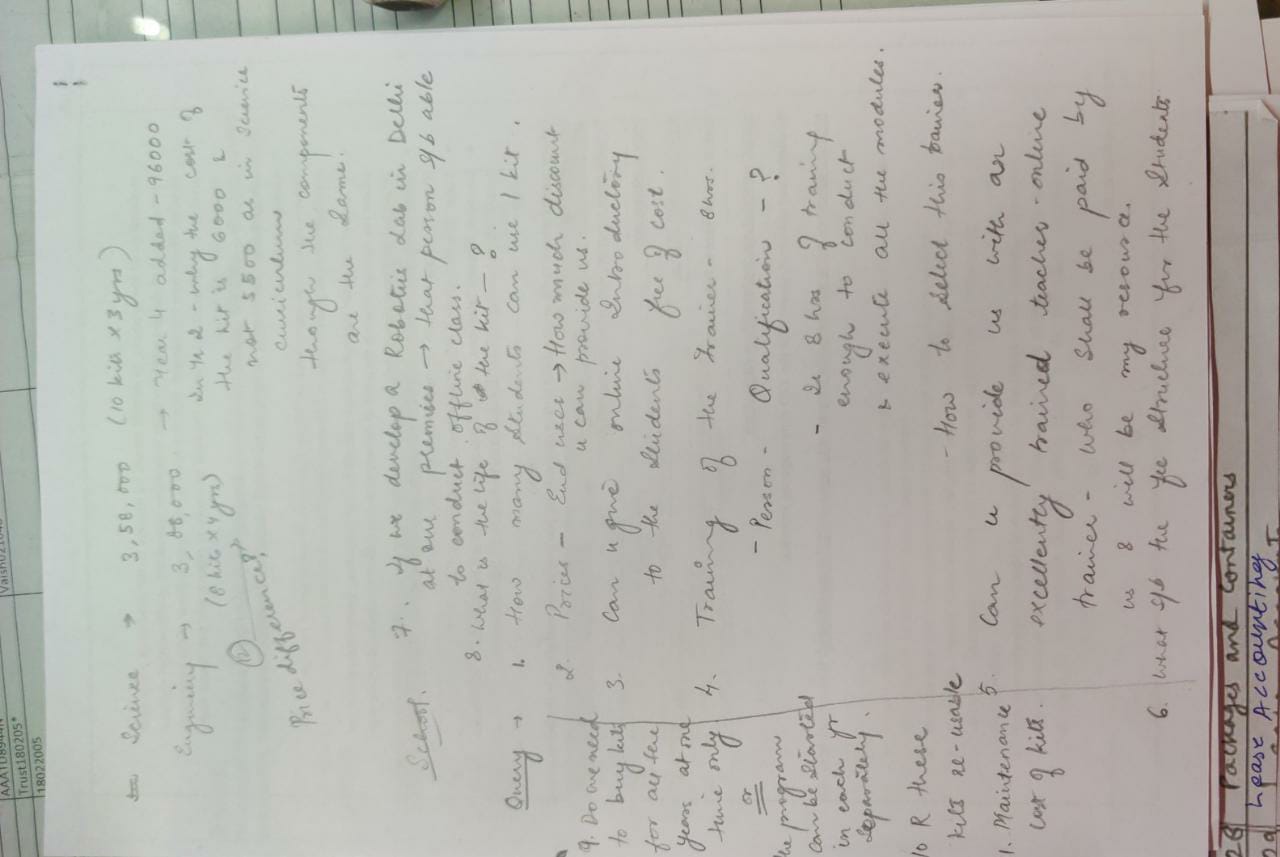 Science → 3,58,000 (10 kits x 3 yrs)
Enginery → 3,88,000 → Year 4 added - 96000
(8 kits x 4 yrs)
In yr 2 - why the cost of
the kit is 6000 &
not 5500 as in science
curriculum
though the components
are the same?
Price difference?
School.
7. If we develop a Robotic Lab in Delhi
at our premises → that person s/b able
to conduct offline class.
8. What is the life of the kit - ?
Query → 1. How many students can use 1 kit.
2. Prices - End users → How much discount
u can provide us.
3. Can u give online Introductory
to the students free of cost.
4. Training of the trainer - 8 hrs.
- Person - Qualification - ?
- Is 8 hrs of training
enough to conduct
& execute all the modules.
- How to select this trainer.
5. Can u provide us with an
excellently trained teacher - online
trainer - who shall be paid by
us & will be my resource.
6. What s/b the fee structure for the students
9. Do we need
to buy kits
for all
years at one
time only
or
the program
can be started
in each yr
separately.
10 R these
kits re-usable
1. Maintenance
cost of kits.
AAATD8944N
Trust180205*
18022005
28 Packages and Containers
29 Lease Accounting